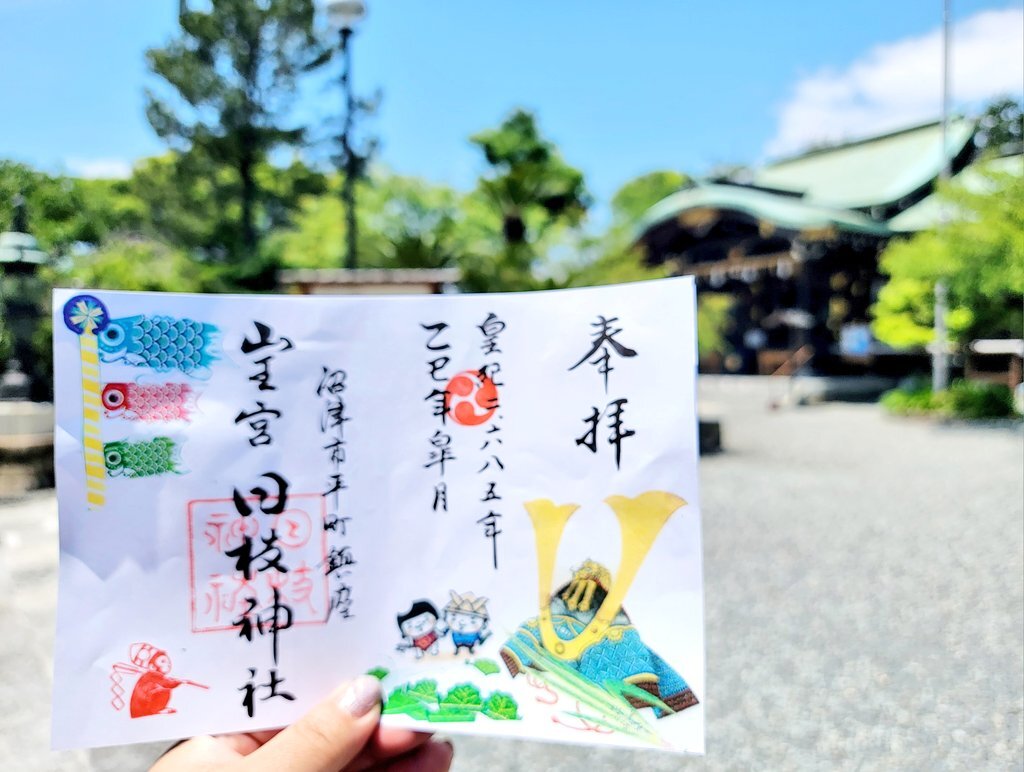 奉拝
皇紀二六八五年
乙巳年皐月
沼津市平町鎮座
山王宮
日枝神社
日枝
神社